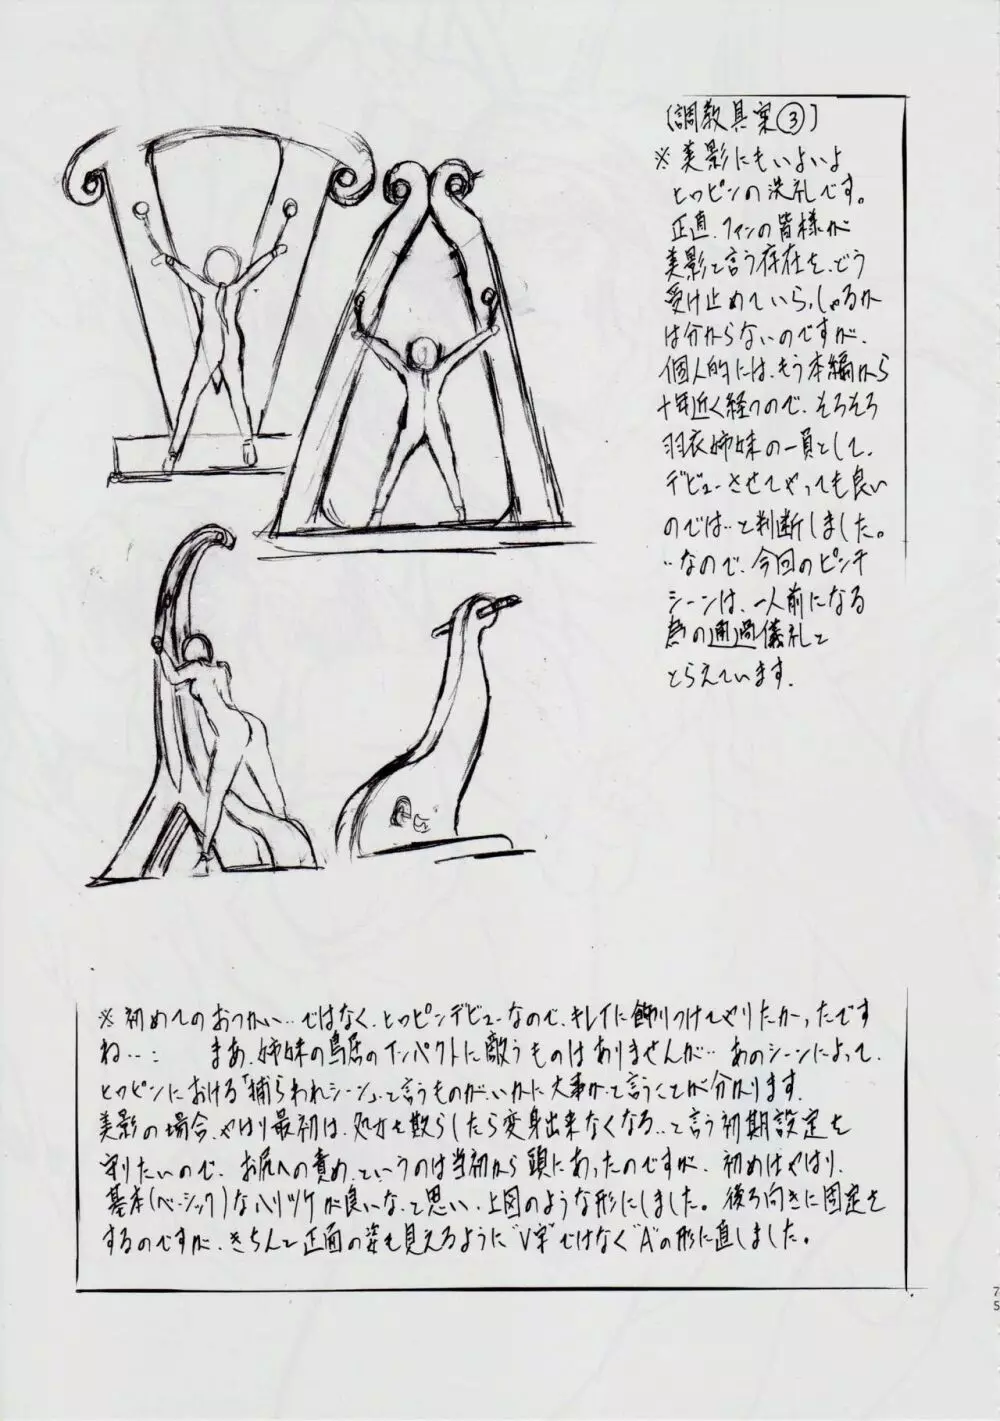 [調教具案③]
※美影にもいよいよ
ヒロピンの洗礼です。
正直、ファンの皆様が
美影と言う存在を、どう
受け止めていらっしゃるか
は分からないのですが、
個人的には、もう本編から
十年近く経つので、そろそろ
羽衣姉妹の一員として、
デビューさせてやっても良い
のでは‥と判断しました。
‥なので、今回のピンチ
シーンは、一人前になる
為の通過儀礼と
とらえています.
※初めてのおつかい…ではなく、ヒロピンデビューなので、キレイに飾りつけてやりたかったです
ね…: まあ、姉妹の鳥居のインパクトに敵うものはありませんが‥あのシーンによって、
ヒロピンにおける「捕らわれシーン」って言うものが、いかに大事かって言うことが分かります.
美影の場合、やはり最初は、処女を散らしたら変身出来なくなる‥と言う初期設定を
守りたいので、お尻への責め、というのは当初から頭にあったのですが、初めはやはり、
基本(ベーシック)なハリツケが良いな、って思い、上図のような形にしました。後ろ向きに固定を
するのですが、きちんと正面の姿も見えるように"V字"ではなく"A"の形に直しました。
75